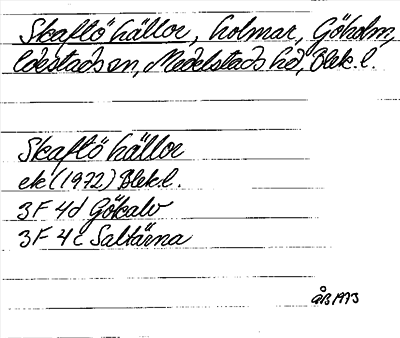 Skaftö hällor, holmar, Göholm,
Edestads sn, Medelstads hd, Blek. l.
Skaftö hällor
ek (1972) Blek.l.
3F 4d Gökalv
3F 4c Saltärna
åB 1973